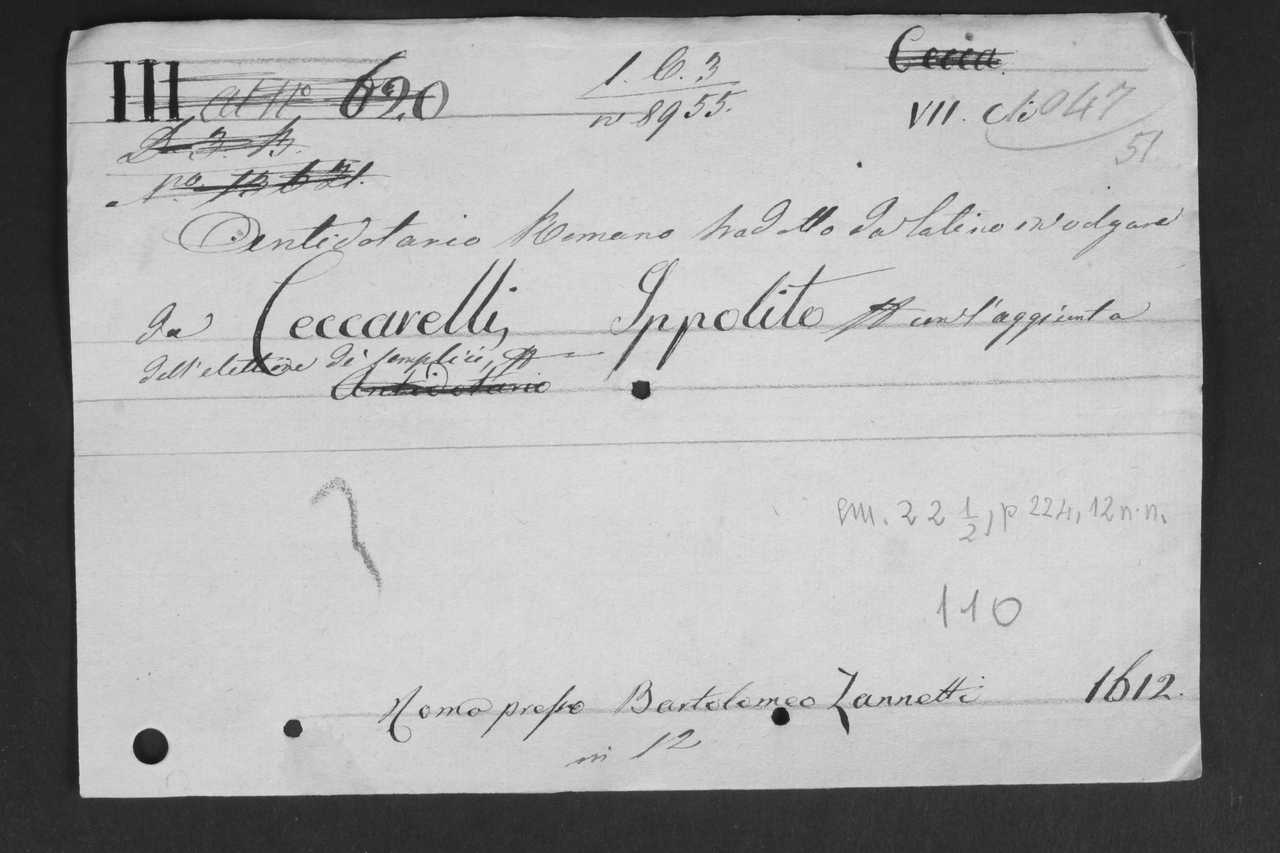 III 620
1. C. 3
n 8955.
Cecca.
VII. 047
51
D. 3. B.
No. 13621.
Antidotario Romano tradotto da latino in volgare
da Ceccarelli, Ippolito con l'aggiunta
dell'elettione di semplici,
Antidotario
em. 22 1/2, p 224, 12 n.n.
110
Roma presso Bartolomeo Zannetti 1612.
in 12